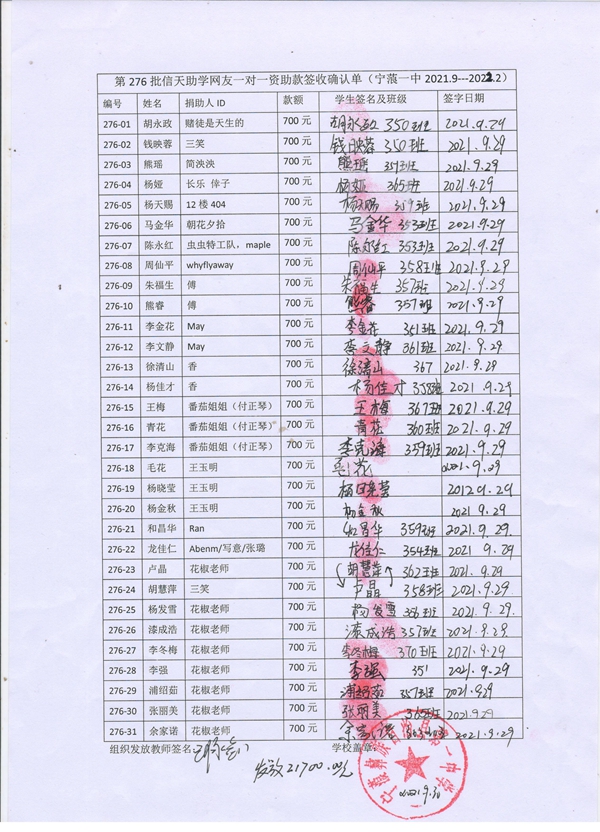 第 276 批信天助学网友一对一资助款签收确认单（宁蒗一中 2021.9---2022.2）
编号 姓名 捐助人 ID 款额 学生签名及班级 签字日期
276-01 胡永政 赌徒是天生的 700 元 胡永政 350班 2021.9.29
276-02 钱映蓉 三笑 700 元 钱映蓉 350班 2021.9.29
276-03 熊瑶 简泱泱 700 元 熊瑶 351班 2021.9.29
276-04 杨娅 长乐 倖子 700 元 杨娅 365班 2021.9.29
276-05 杨天赐 12 楼 404 700 元 杨天赐 359班 2021.9.29
276-06 马金华 朝花夕拾 700 元 马金华 353班 2021.9.29
276-07 陈永红 虫虫特工队，maple 700 元 陈永红 353班 2021.9.29
276-08 周仙平 whyflyaway 700 元 周仙平 358班 2021.9.29
276-09 朱福生 傅 700 元 朱福生 357班 2021.9.29
276-10 熊睿 傅 700 元 熊睿 357班 2021.9.29
276-11 李金花 May 700 元 李金花 361班 2021.9.29
276-12 李文静 May 700 元 李文静 361班 2021.9.29
276-13 徐清山 香 700 元 徐清山 367 2021.9.29
276-14 杨佳才 香 700 元 杨佳才 358班 2021.9.29
276-15 王梅 番茄姐姐（付正琴） 700 元 王梅 367班 2021.9.29
276-16 青花 番茄姐姐（付正琴） 700 元 青花 360班 2021.9.29
276-17 李克海 番茄姐姐（付正琴） 700 元 李克海 359班 2021.9.29
276-18 毛花 王玉明 700 元 毛花 2021.9.29
276-19 杨晓莹 王玉明 700 元 杨晓莹 2012 9.29
276-20 杨金秋 王玉明 700 元 杨金秋 2021.9.29
276-21 和昌华 Ran 700 元 和昌华 359班 2021.9.29.
276-22 龙佳仁 Abenm/写意/张璐 700 元 龙佳仁 354班 2021 9.29
276-23 卢晶 花椒老师 700 元 胡慧萍 362班 2021.9.29
276-24 胡慧萍 三笑 700 元 卢晶 358班 2021.9.29
276-25 杨发雪 花椒老师 700 元 杨发雪 356班 2021.9.29.
276-26 漆成浩 花椒老师 700 元 漆成浩 357班 2021.9.29
276-27 李冬梅 花椒老师 700 元 李冬梅 370班 2021.9.29
276-28 李强 花椒老师 700 元 李强 351 2021.9.29
276-29 浦绍茹 花椒老师 700 元 浦绍茹 357班 2021.9.29
276-30 张丽美 花椒老师 700 元 张丽美 365班 2021.9.29
276-31 余家诺 花椒老师 700 元 余家诺 2021.9.29
组织发放教师签名： 学校盖章：
发放21700.00元
2021.9.30